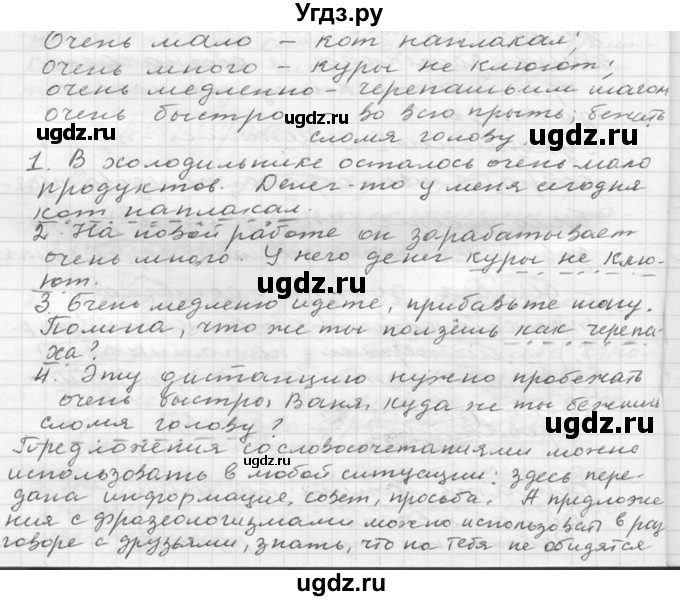 Угдз.ру
Очень мало – кот наплакал;
очень много – куры не клюют;
очень медленно – черепашьим шагом
очень быстро во всю прыть; бежать
сломя голову.
1. В холодильнике осталось очень мало
продуктов. Денег-то у меня сегодня
кот наплакал.
2. На новой работе он зарабатывает
очень много. У него денег куры не клю-
ют.
3 Очень медленно идете, прибавьте шагу.
Полина, что же ты ползёшь как черепа-
ха?
4. Эту дистанцию нужно пробежать
очень быстро. Ваня, куда же ты бежишь
сломя голову?
Предложения со словосочетаниями можно
использовать в любой ситуации: здесь пере-
дана информация, совет, просьба. А предложе
ния с фразеологизмами можно использоват в раз
говоре с друзьями, знать, что на тебя не обидятся
ugdz.ru
ugdz.ru
ugdz.ru
ugdz.ru
ugdz.ru
ugdz.ru
ugdz.ru
ugdz.ru
ugdz.ru
ugdz.ru
ugdz.ru